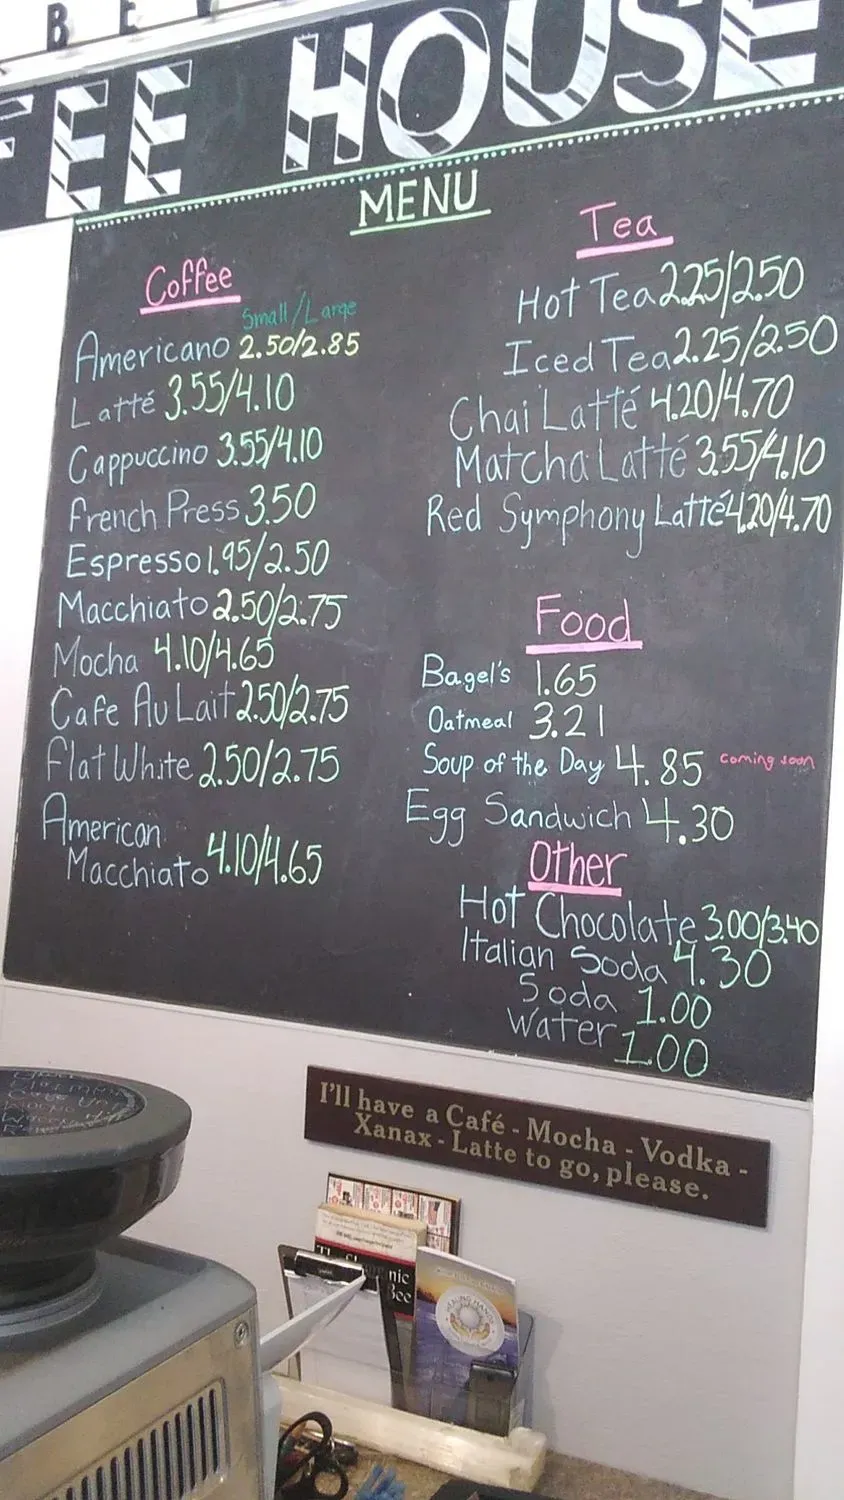 B E V
FEE HOUSE
MENU
Coffee
Small/Large
Americano 2.50/2.85
Latté 3.55/4.10
Cappuccino 3.55/4.10
French Press 3.50
Espresso 1.95/2.50
Macchiato 2.50/2.75
Mocha 4.10/4.65
Cafe Au Lait 2.50/2.75
Flat White 2.50/2.75
American
Macchiato 4.10/4.65
Tea
Hot Tea 2.25/2.50
Iced Tea 2.25/2.50
Chai Latté 4.20/4.70
Matcha Latté 3.55/4.10
Red Symphony Latté 4.20/4.70
Food
Bagel's 1.65
Oatmeal 3.21
Soup of the Day 4.85 coming soon
Egg Sandwich 4.30
Other
Hot Chocolate 3.00/3.40
Italian Soda 4.30
Soda 1.00
Water 1.00
I'll have a Café - Mocha - Vodka -
Xanax - Latte to go, please.
nic
Bee
HEALING HANDS